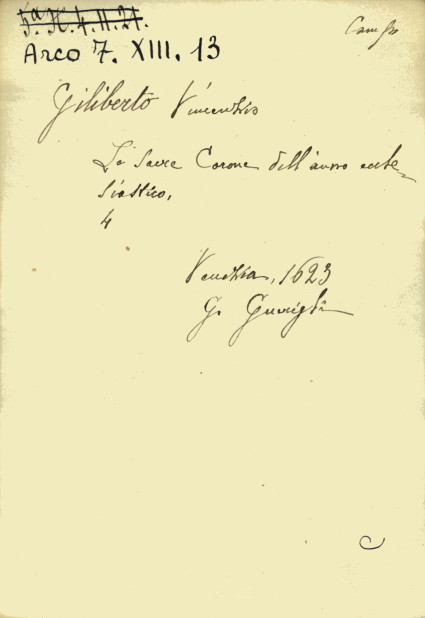 5.a H. 4. II. 21.
Arco 7. XIII. 13
Giliberto Vincenzio
Le Sacre Corone dell'anno eccle-
siastico,
4
Venezia, 1623
G.
C